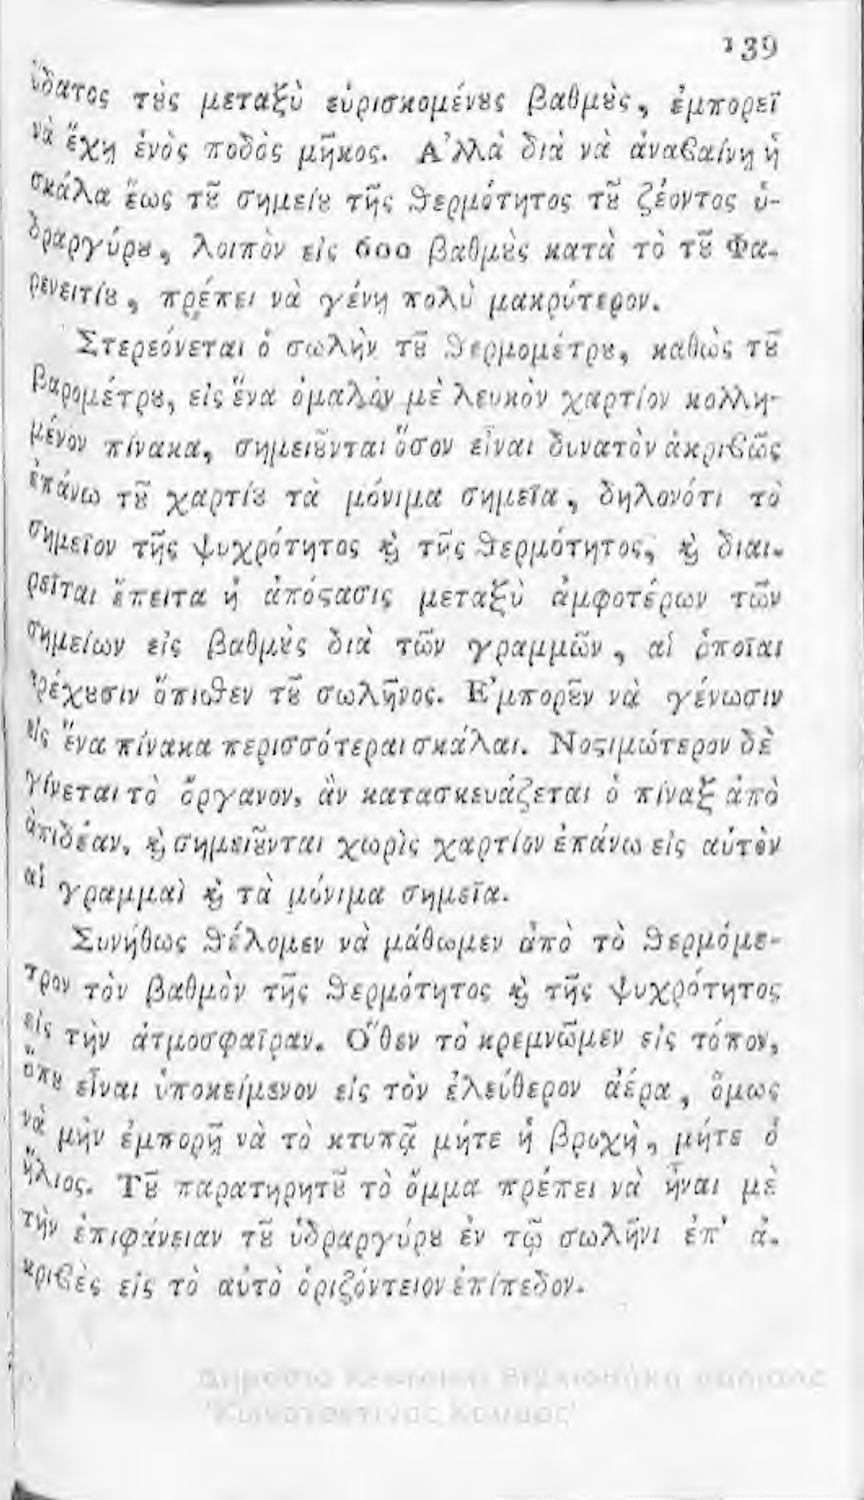 139
ὕδατος τȣ̀ς μεταξὺ εὑρισκομένȣς βαθμȣ̀ς, ἐμπορεῖ
νὰ ἔχῃ ἑνὸς ποδὸς μῆκος. Α᾿λλὰ διὰ νὰ ἀναβαίνῃ ἡ
σκάλα ἕως τȣ͂ σημείȣ τῆς θερμότητος τȣ͂ ζέοντος ὑ-
δραργύρȣ, λοιπὸν εἰς 600 βαθμȣ̀ς κατὰ τὸ τȣ͂ Φα-
ρενειτίȣ, πρέπει νὰ γένῃ πολὺ μακρύτερον.
Στερεόνεται ὁ σωλὴν τȣ͂ θερμομέτρȣ, καθὼς τȣ͂
βαρομέτρȣ, εἰς ἕνα ὁμαλὸν μὲ λευκὸν χαρτίον κολλη-
μένον πίνακα, σημειȣ͂νται ὅσον εἶναι δυνατὸν ἀκριβῶς
ἐπάνω τȣ͂ χαρτίȣ τὰ μόνιμα σημεῖα, δηλονότι τὸ
σημεῖον τῆς ψυχρότητος ϗ̀ τῆς θερμότητος, ϗ̀ διαι-
ρεῖται ἔπειτα ἡ ἀπόϛασις μεταξὺ ἀμφοτέρων τῶν
σημείων εἰς βαθμȣ̀ς διὰ τῶν γραμμῶν, αἱ ὁποῖαι
τρέχȣσιν ὄπιθεν τȣ͂ σωλῆνος. Ε᾿μπορȣ͂ν νὰ γένωσιν
εἰς ἕνα πίνακα περισσότεραι σκάλαι. Νοϛιμώτερον δὲ
γίνεται τὸ ὄργανον, ἂν κατασκευάζεται ὁ πίναξ ἀπὸ
ἀπιδέαν, ϗ̀ σημειȣ͂νται χωρὶς χαρτίον ἐπάνω εἰς αὐτὸν
αἱ γραμμαὶ ϗ̀ τὰ μόνιμα σημεῖα.
Συνήθως θέλομεν νὰ μάθωμεν ἀπὸ τὸ θερμόμε-
τρον τὸν βαθμὸν τῆς θερμότητος ϗ̀ τῆς ψυχρότητος
εἰς τὴν ἀτμοσφαῖραν. Ο῞θεν τὸ κρεμνῶμεν εἰς τόπον,
ὅπȣ εἶναι ὑποκείμενον εἰς τὸν ἐλεύθερον ἀέρα, ὅμως
νὰ μὴν ἐμπορῇ νὰ τὸ κτυπᾷ μήτε ἡ βροχὴ, μήτε ὁ
ἥλιος. Τȣ͂ παρατηρητȣ͂ τὸ ὄμμα πρέπει νὰ ἦναι μὲ
τὴν ἐπιφάνειαν τȣ͂ ὑδραργύρȣ ἐν τῷ σωλῆνι ἐπ' ἀ-
κριβὲς εἰς τὸ αὐτὸ ὁριζόντειον ἐπίπεδον.
Δημόσια Κεντρική Βιβλιοθήκη